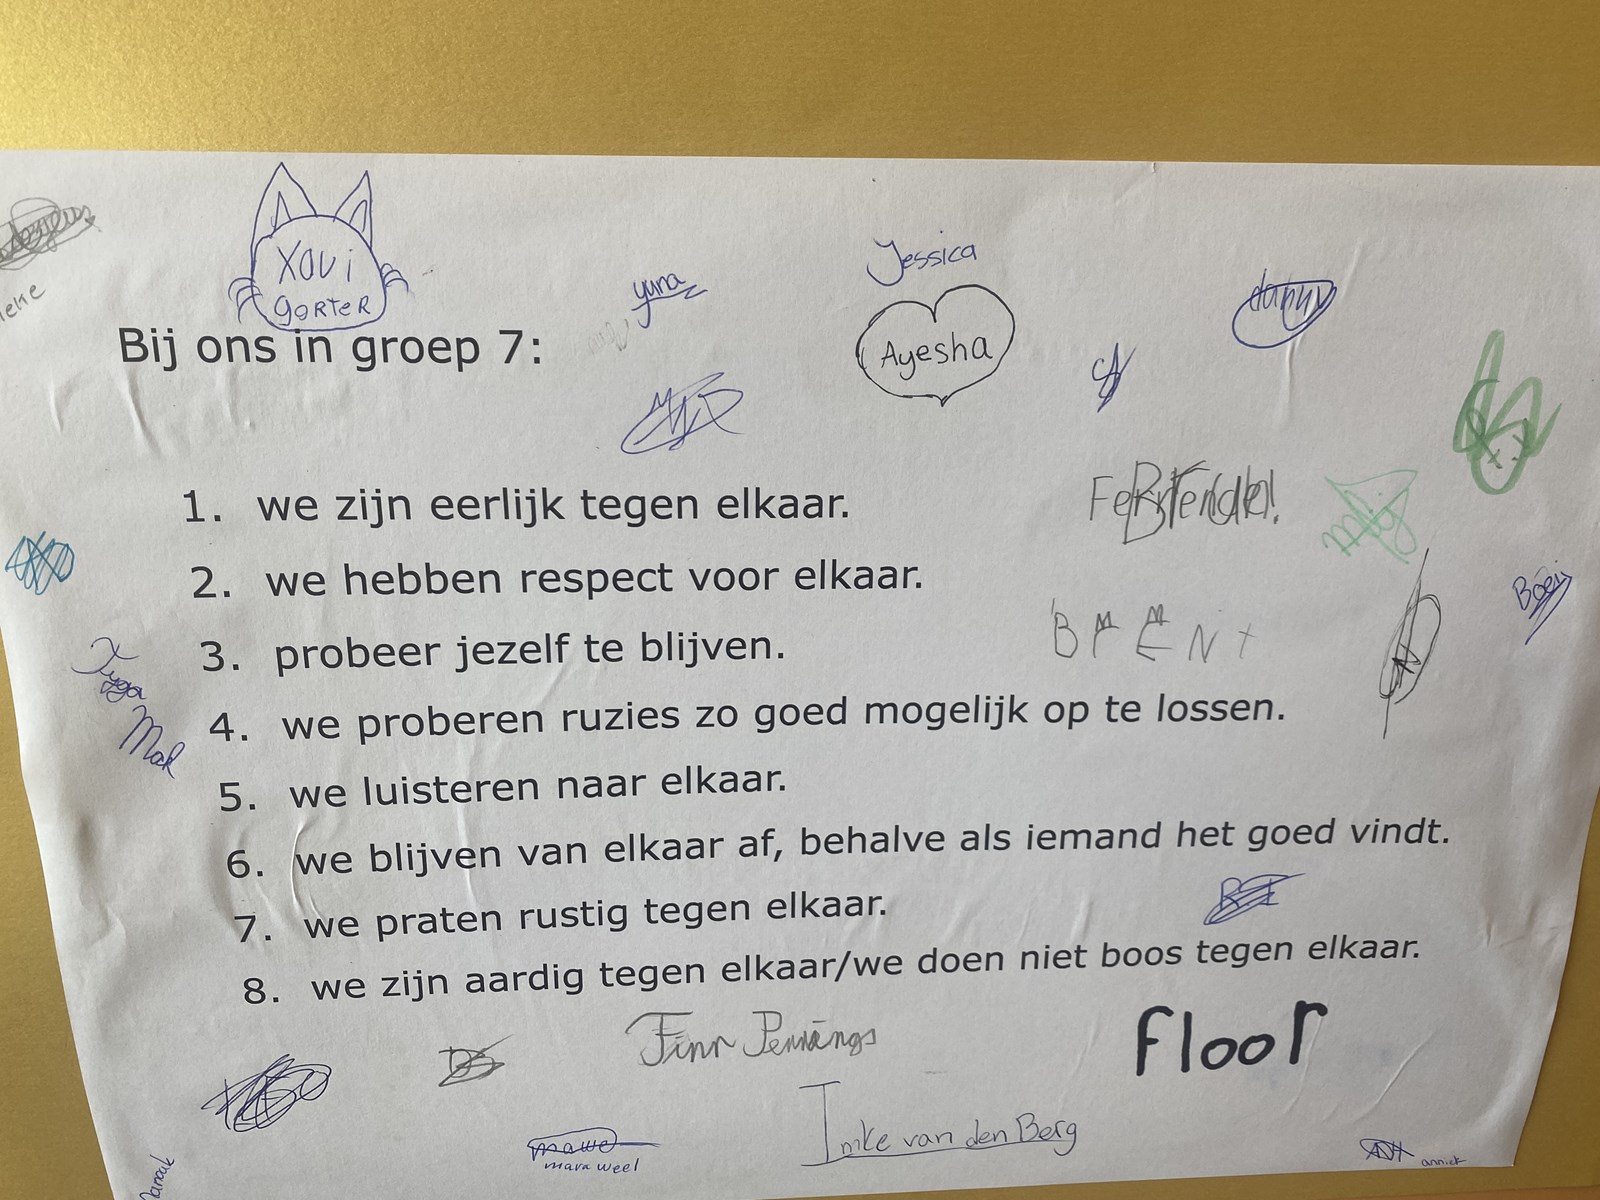 Xavi
gorter
yuna
Jessica
Ayesha
danny
Bij ons in groep 7:
1. we zijn eerlijk tegen elkaar.
2. we hebben respect voor elkaar.
3. probeer jezelf te blijven.
BrENt
4. we proberen ruzies zo goed mogelijk op te lossen.
Mak
5. we luisteren naar elkaar.
6. we blijven van elkaar af, behalve als iemand het goed vindt.
7. we praten rustig tegen elkaar.
8. we zijn aardig tegen elkaar/we doen niet boos tegen elkaar.
Finn Pennings
floor
Imke van den Berg
mawe
mara weel
anniek